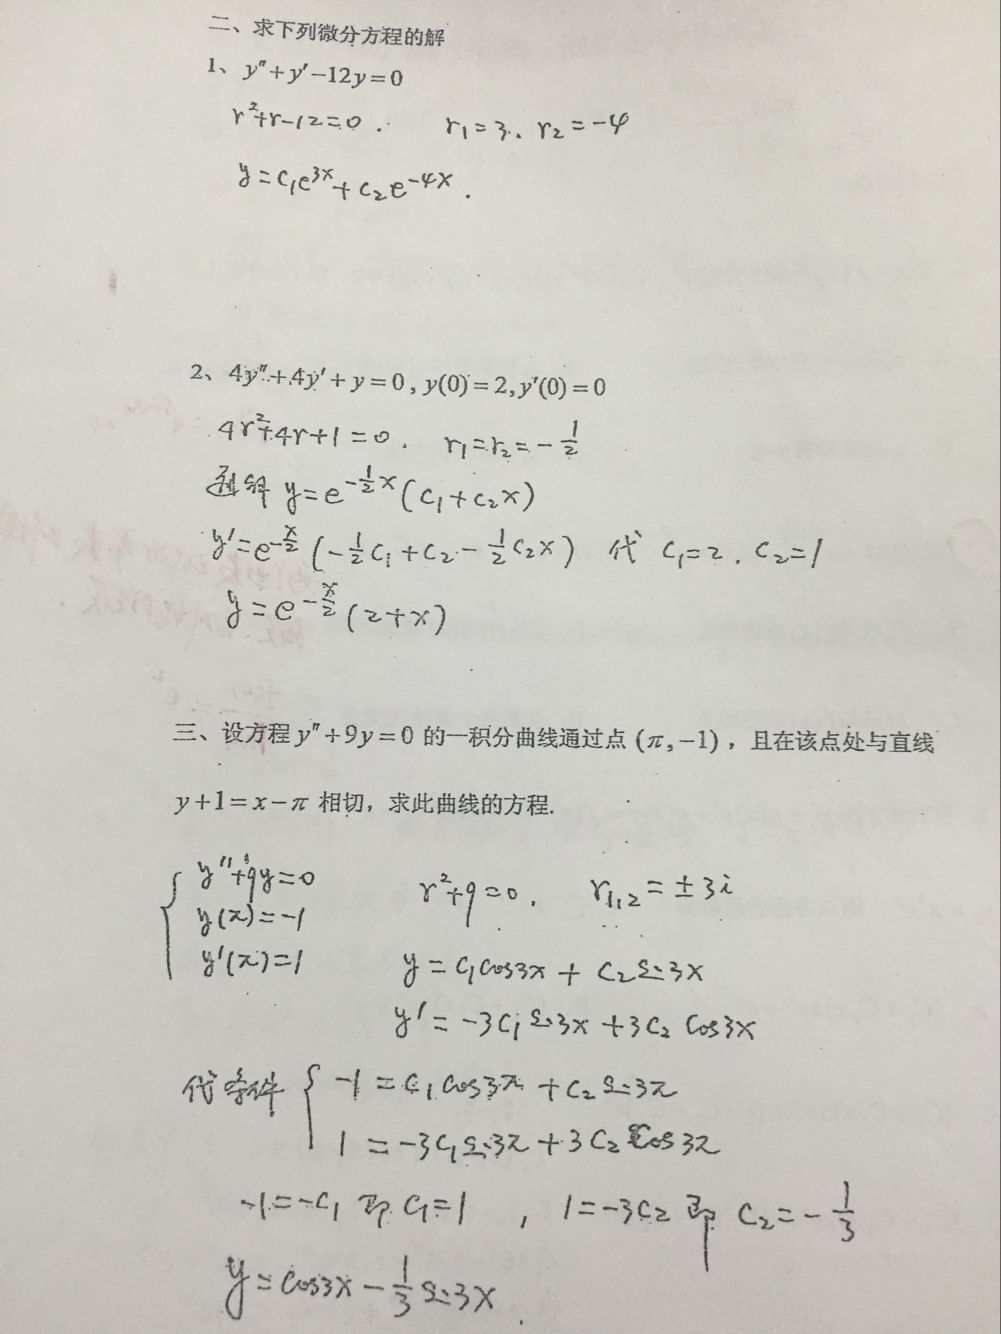 二、求下列微分方程的解
1、y″+y′−12y=0
r²+r−12=0. r₁=3. r₂=−4
y=C₁e³ˣ+C₂e⁻⁴ˣ.
2、4y″+4y′+y=0, y(0)=2, y′(0)=0
4r²+4r+1=0. r₁=r₂=−1/2
通解 y=e^(−1/2 x)(C₁+C₂x)
y′=e^(−x/2)(−1/2 C₁+C₂−1/2 C₂x) 代 C₁=2. C₂=1
y=e^(−x/2)(2+x)
三、设方程 y″+9y=0 的一积分曲线通过点 (π,−1)，且在该点处与直线
y+1=x−π 相切，求此曲线的方程.
y″+9y=0 r²+9=0. r₁,₂=±3i
y(π)=−1
y′(π)=1 y=C₁cos3x+C₂sin3x
y′=−3C₁sin3x+3C₂cos3x
代条件 { −1=C₁cos3π+C₂sin3π
1=−3C₁sin3π+3C₂cos3π
−1=−C₁ 即 C₁=1, 1=−3C₂ 即 C₂=−1/3
y=cos3x−1/3 sin3x.